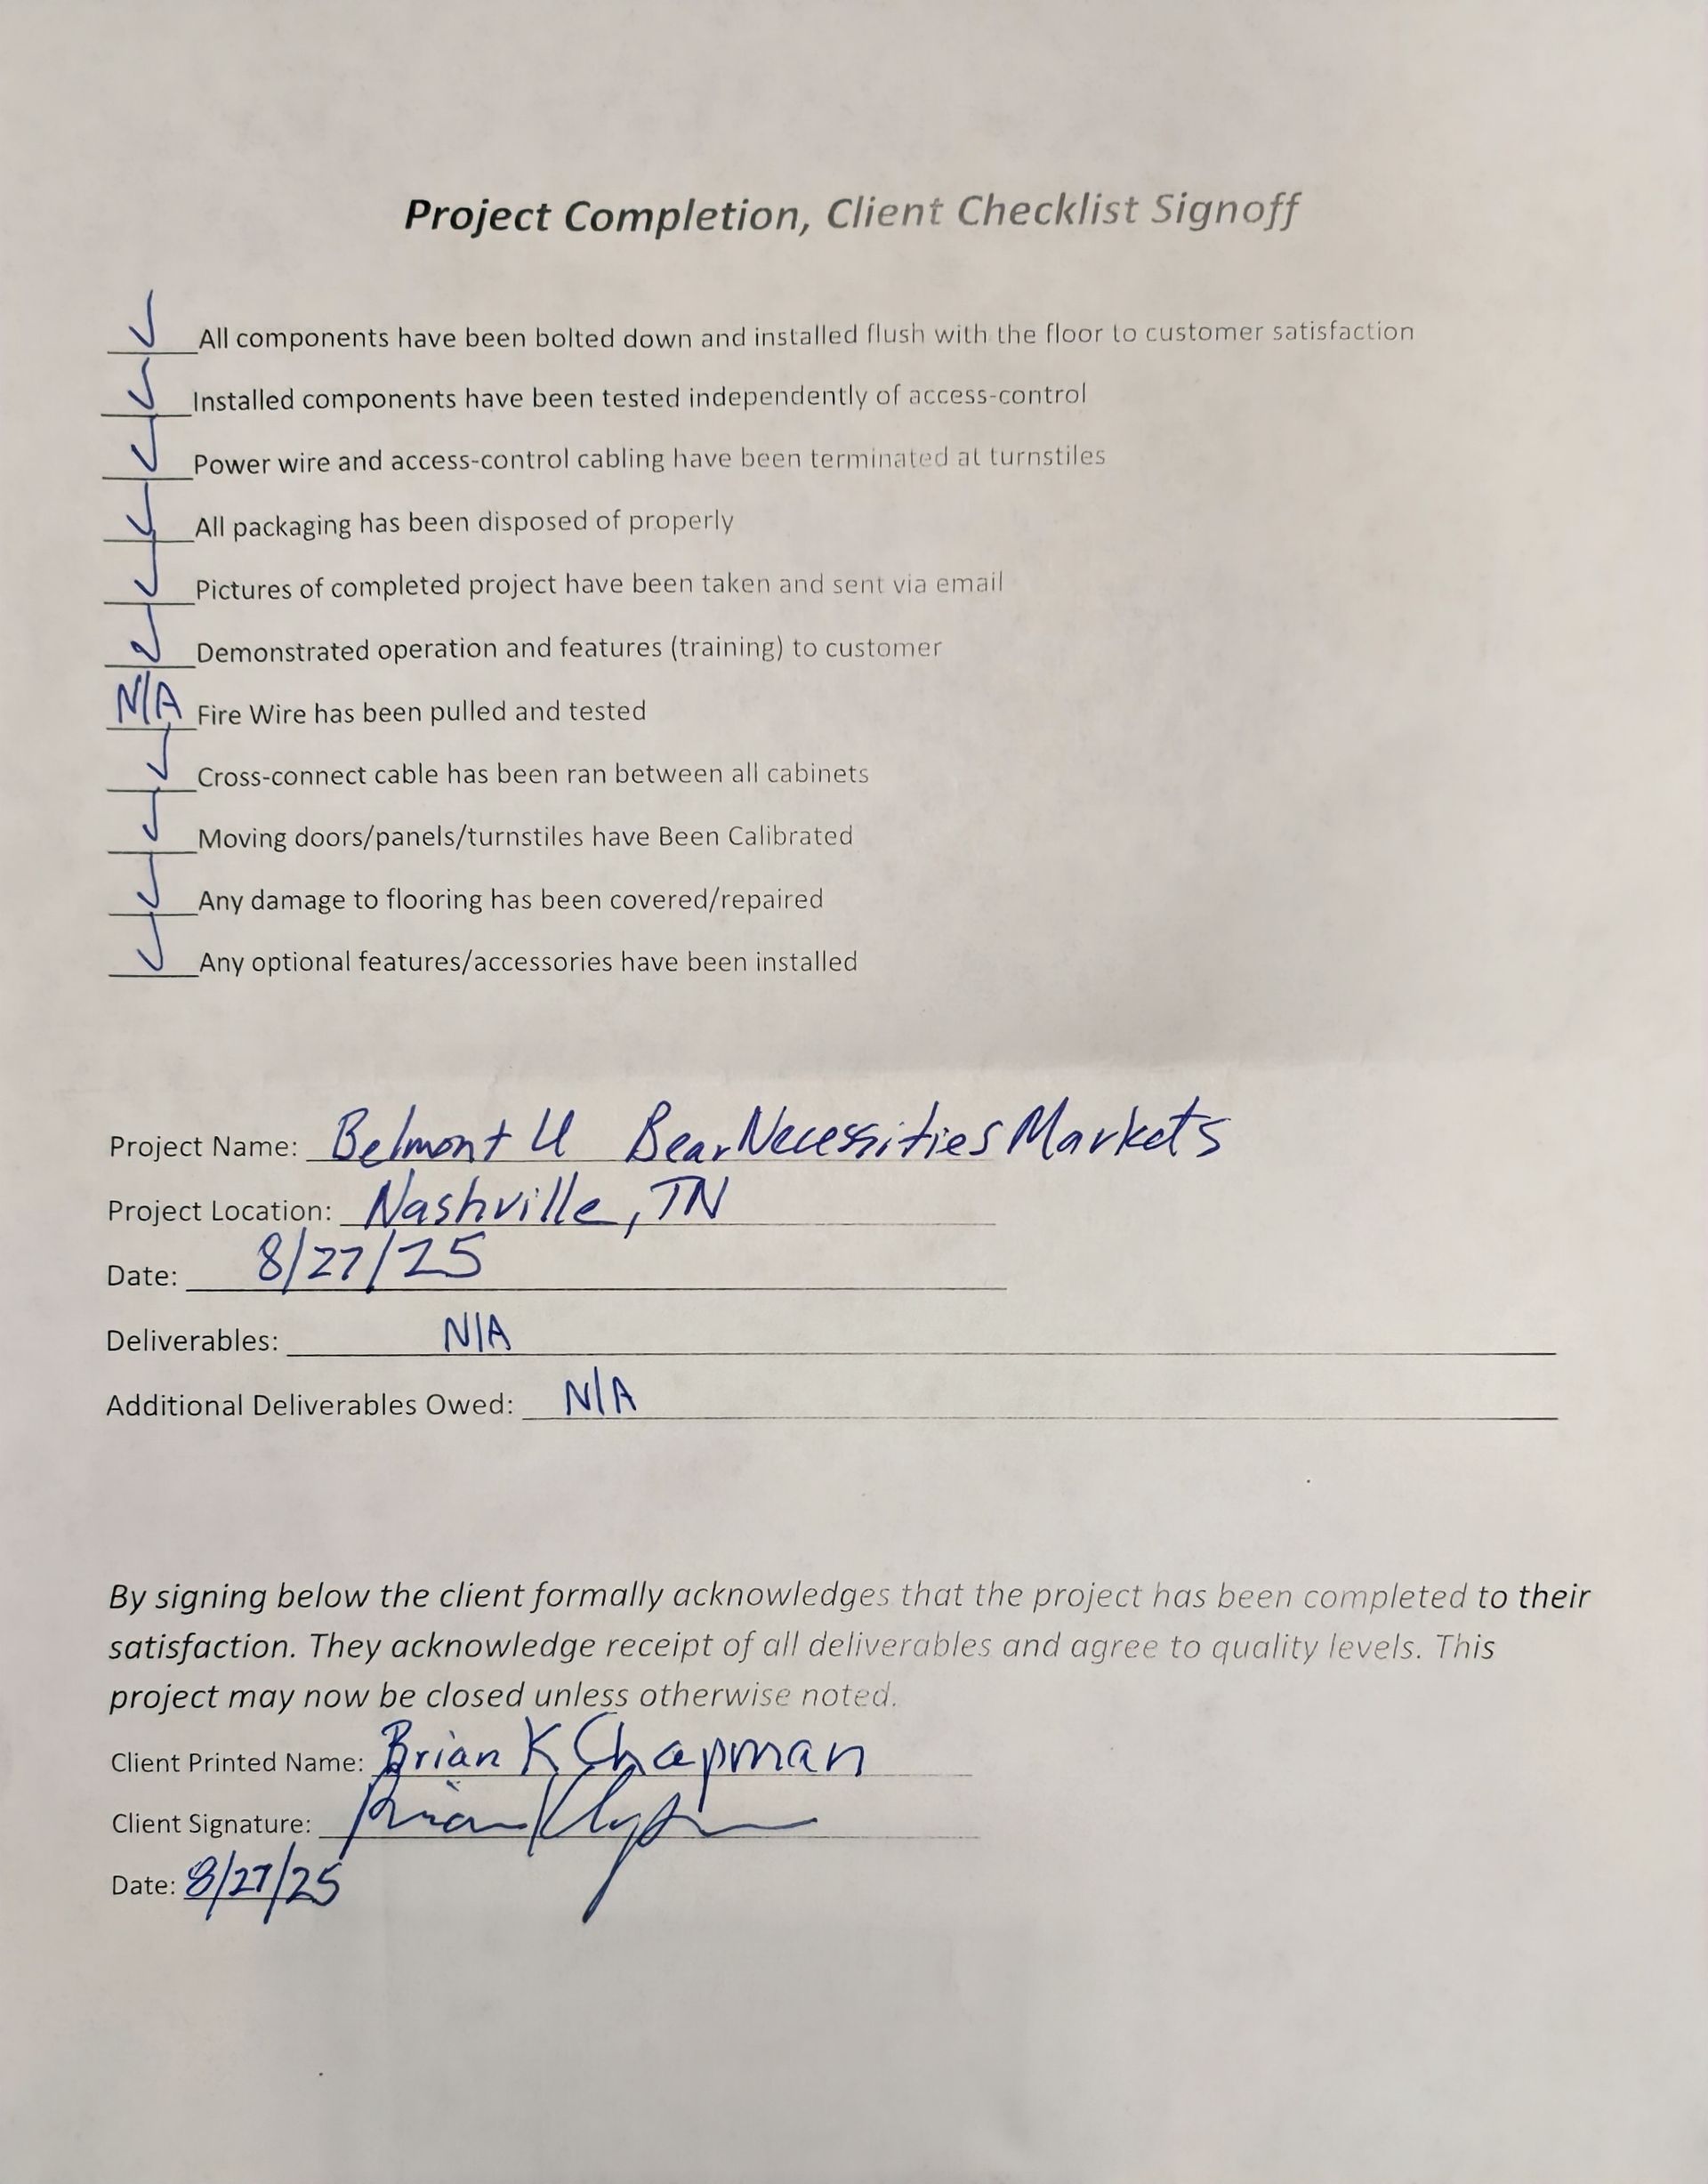 Project Completion, Client Checklist Signoff
✓ All components have been bolted down and installed flush with the floor to customer satisfaction
✓ Installed components have been tested independently of access-control
✓ Power wire and access-control cabling have been terminated at turnstiles
✓ All packaging has been disposed of properly
✓ Pictures of completed project have been taken and sent via email
✓ Demonstrated operation and features (training) to customer
N/A Fire Wire has been pulled and tested
✓ Cross-connect cable has been ran between all cabinets
✓ Moving doors/panels/turnstiles have Been Calibrated
✓ Any damage to flooring has been covered/repaired
✓ Any optional features/accessories have been installed
Project Name: Belmont U Bear Necessities Markets
Project Location: Nashville, TN
Date: 8/27/25
Deliverables: N/A
Additional Deliverables Owed: N/A
By signing below the client formally acknowledges that the project has been completed to their
satisfaction. They acknowledge receipt of all deliverables and agree to quality levels. This
project may now be closed unless otherwise noted.
Client Printed Name: Brian K Chapman
Client Signature:
Date: 8/27/25